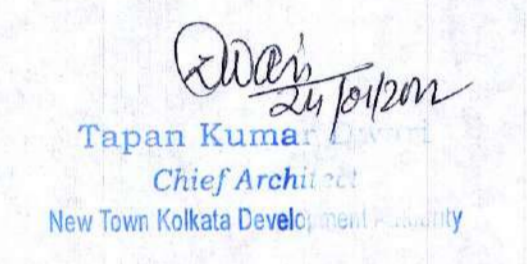 24/01/2022
Tapan Kumar Dwari
Chief Architect
New Town Kolkata Development Authority